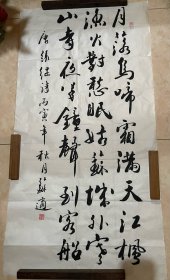 月落烏啼霜滿天江楓
漁火對愁眠姑蘇城外寒
山寺夜半鐘聲到客船
唐張继詩丙寅年秋月蘇適